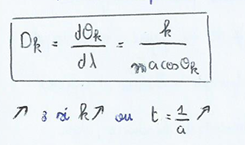 D_k = dθ_k / dλ = k / (n a cos θ_k)
↗ si k ↗ ou t = 1/a ↗